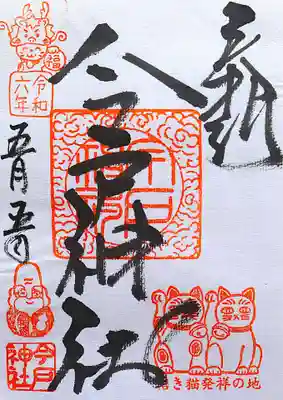 奉拝
今戸神社
招き猫発祥の地
福
令和
六年
五月五日
今戸
神社